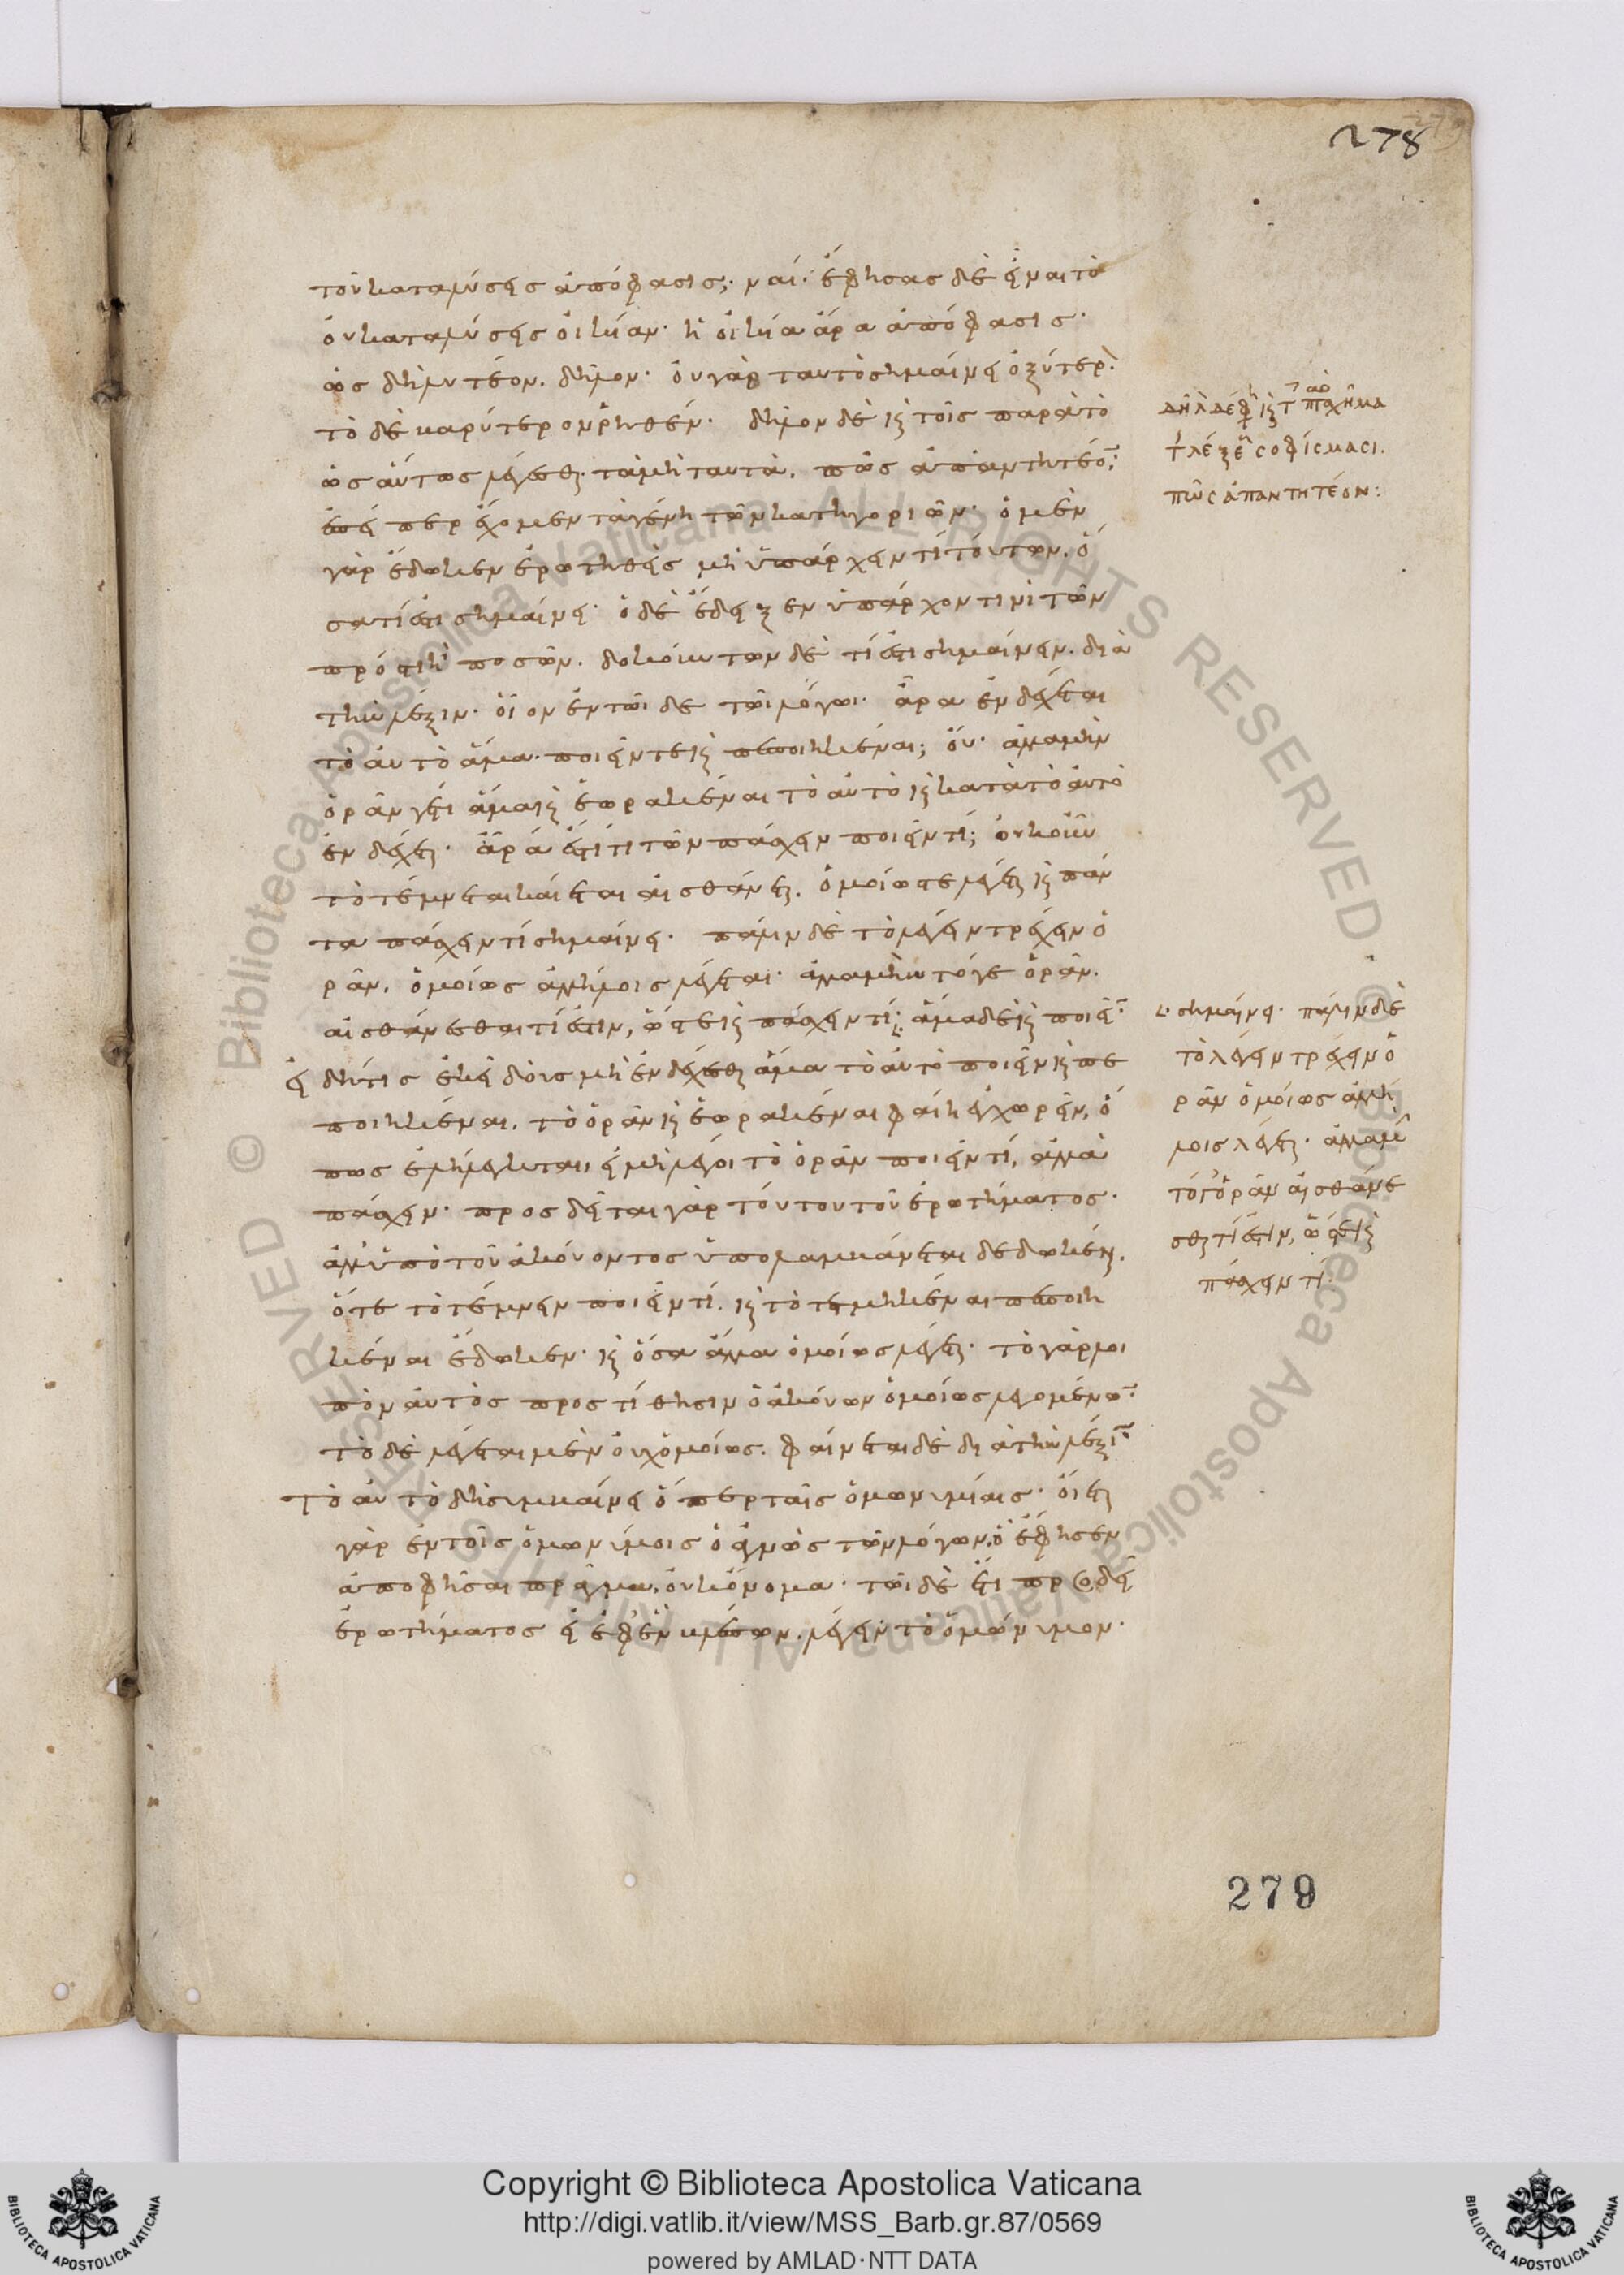 278
τοῦ καταλύσεις ἀπόφασις; ναί· ἔφησας δὲ εἶναι τὸ
οὐ καταλύσεις οἰκίαν· ἡ οἰκία ἄρα ἀπόφασις·
ὡς δὴ λυτέον. δῆλον· οὐ γὰρ ταυτὸ σημαίνει ὀξύτερ
τὸ δὲ βαρύτερον ῥηθέν· δῆλον δὲ κ τοῖς παρὰ τὸ
ὡσαύτως λέγεσθαι τὰ μὴ ταυτά. πῶς ἀπαντητέον·
ἐπείπερ ἔχομεν τὰ γένη τῶν κατηγοριῶν· ὁ μὲν
γὰρ ἔδωκεν ἐρωτηθεὶς μὴ ὑπάρχειν τι τούτων. ὅ
σα τί ἐστι σημαίνει· ὁ δὲ ἔδειξεν ὑπάρχον τινὶ τῶν
πρός τι ἢ ποσῶν. δοκούντων δὲ τί ἐστι σημαίνειν. διὰ
τὴν λέξιν· οἷον ἐν τῶιδε τῶι λόγωι· ἆρα ἐνδέχεται
τὸ αὐτὸ ἅμα ποιεῖν τε κ πεποιηκέναι; οὔ· ἀλλὰ μὴν
ὁρᾶν γέ τι ἅμα κ ἑωρακέναι τὸ αὐτὸ κ κατὰ τὸ αὐτὸ
ἐνδέχεται· ἆρά ἐστί τι τῶν πάσχειν ποιεῖν τί; οὐκοῦν
τὸ τέμνεται καίεται αἰσθάνεται. ὁμοίως λέγεται κ πάν
τα πάσχειν τί σημαίνει· πάλιν δὲ τὸ λέγειν τρέχειν ὁ
ρᾶν. ὁμοίως ἀλλήλοις λέγεται· ἀλλὰ μὴν τό γε ὁρᾶν.
αἰσθάνεσθαι τί ἐστιν, ὥστε κ πάσχειν τί· ἅμα δὲ κ ποιεῖν·
εἰ δή τις ἐκεῖ διδοὺς μὴ ἐνδέχεσθαι ἅμα τὸ αὐτὸ ποιεῖν κ πε
ποιηκέναι. τὸ ὁρᾶν κ ἑωρακέναι φαίη ἐγχωρεῖν, οὔ
πως ἐλήλεγκται, εἰ μὴ λέγοι τὸ ὁρᾶν ποιεῖν τί, ἀλλὰ
πάσχειν· προσδεῖται γὰρ τούτου τοῦ ἐρωτήματος·
ἀλλ' ὑπὸ τοῦ ἀκούοντος ὑπολαμβάνεται δεδωκέναι.
ὅτε τὸ τέμνειν ποιεῖν τί. κ τὸ τετμηκέναι πεποιη
κέναι ἔδωκεν· κ ὅσα ἄλλα ὁμοίως λέγεται· τὸ γὰρ λοι
πὸν αὐτὸς προστίθησιν ὁ ἀκούων ὁμοίως λεγόμενον·
τὸ δὲ λέγεται μὲν οὐχ ὁμοίως. φαίνεται δὲ διὰ τὴν λέξιν·
τὸ αὐτὸ δὴ συμβαίνει ὅπερ ταῖς ὁμωνυμίαις· οἴεται
γὰρ ἐν τοῖς ὁμωνύμοις ὁ ἀγνὼς τῶν λόγων, ὃ ἔφησεν
ἀποφῆσαι πρᾶγμα, οὐκ ὄνομα· τῶι δὲ ἔτι προσδεῖ
ἐρωτήματος εἰ ἐφ' ἓν βλέπων. λέγει τὸ ὁμώνυμον·
πῶς ἀπαντητέον:
σημαίνει· πάλιν δὲ
τὸ λέγειν τρέχειν ὁ
ρᾶν ὁμοίως ἀλλή
λοις λέγεται· ἀλλὰ μὴν
τό γ' ὁρᾶν αἰσθάνε
σθαι τί ἐστιν, ὥστε κ
πάσχειν τί·
279
Copyright © Biblioteca Apostolica Vaticana
http://digi.vatlib.it/view/MSS_Barb.gr.87/0569
powered by AMLAD·NTT DATA